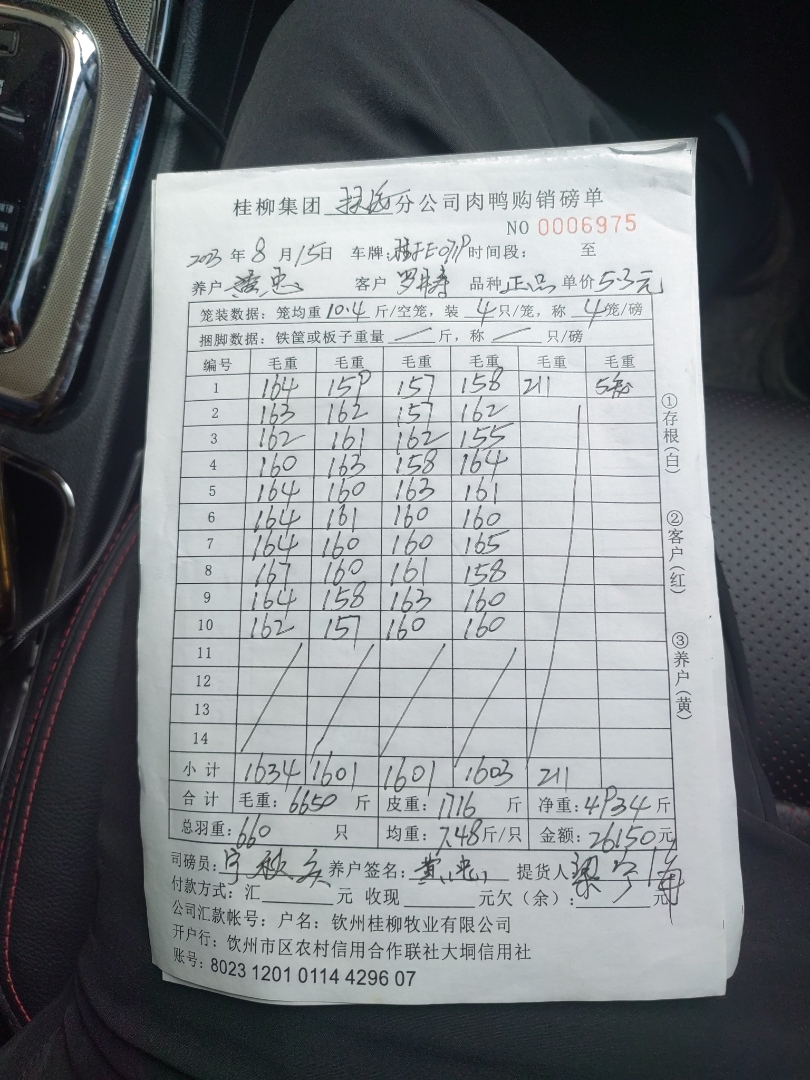 桂柳集团 分公司肉鸭购销磅单
NO 0006975
2023 年 8 月 15日 车牌: 时间段: 至
养户 客户 品种 正品 单价 5.3元
笼装数据: 笼均重 10.4 斤/空笼, 装 4 只/笼, 称 4 笼/磅
捆脚数据: 铁筐或板子重量 斤, 称 只/磅
编号 毛重 毛重 毛重 毛重 毛重 毛重
1 164 159 157 158 211 5
2 163 162 157 162
3 162 161 162 155
4 160 163 158 164
5 164 160 163 161
6 164 161 160 160
7 164 160 160 165
8 167 160 161 158
9 164 158 163 160
10 162 157 160 160
11
12
13
14
小计 1634 1601 1601 1603 211
合计 毛重: 6650 斤 皮重: 1716 斤 净重: 4934 斤
总羽重: 660 只 均重: 7.48 斤/只 金额: 26150 元
司磅员: 养户签名: 提货人:
付款方式: 汇 元 收现 元欠(余): 元
公司汇款帐号: 户名: 钦州桂柳牧业有限公司
开户行: 钦州市区农村信用合作联社大垌信用社
账号: 8023 1201 0114 4296 07
①存根(白)
②客户(红)
③养户(黄)